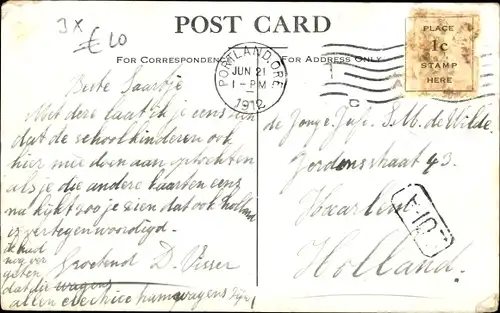 3x
€ 10
POST CARD
FOR CORRESPONDENCE
FOR ADDRESS ONLY
PLACE
1c
STAMP
HERE
PORTLAND, ORE.
JUN 21
1-PM
1912
Beste Saartje
Met deze laat ik je eens zien
dat de schoolkinderen ook
hier mee doen aan optochten
als je die andere kaarten eens
nu kijkt zoo je zien dat ook Holland
is vertegenwoordigd.
ik had
nog ver
geten
Groetend D. Visser
dat die wagens
allen electrice wagens zijn
de Jonge Juf. S. M. de Wilde
Jordensstraat 93.
Haarlem
Holland.